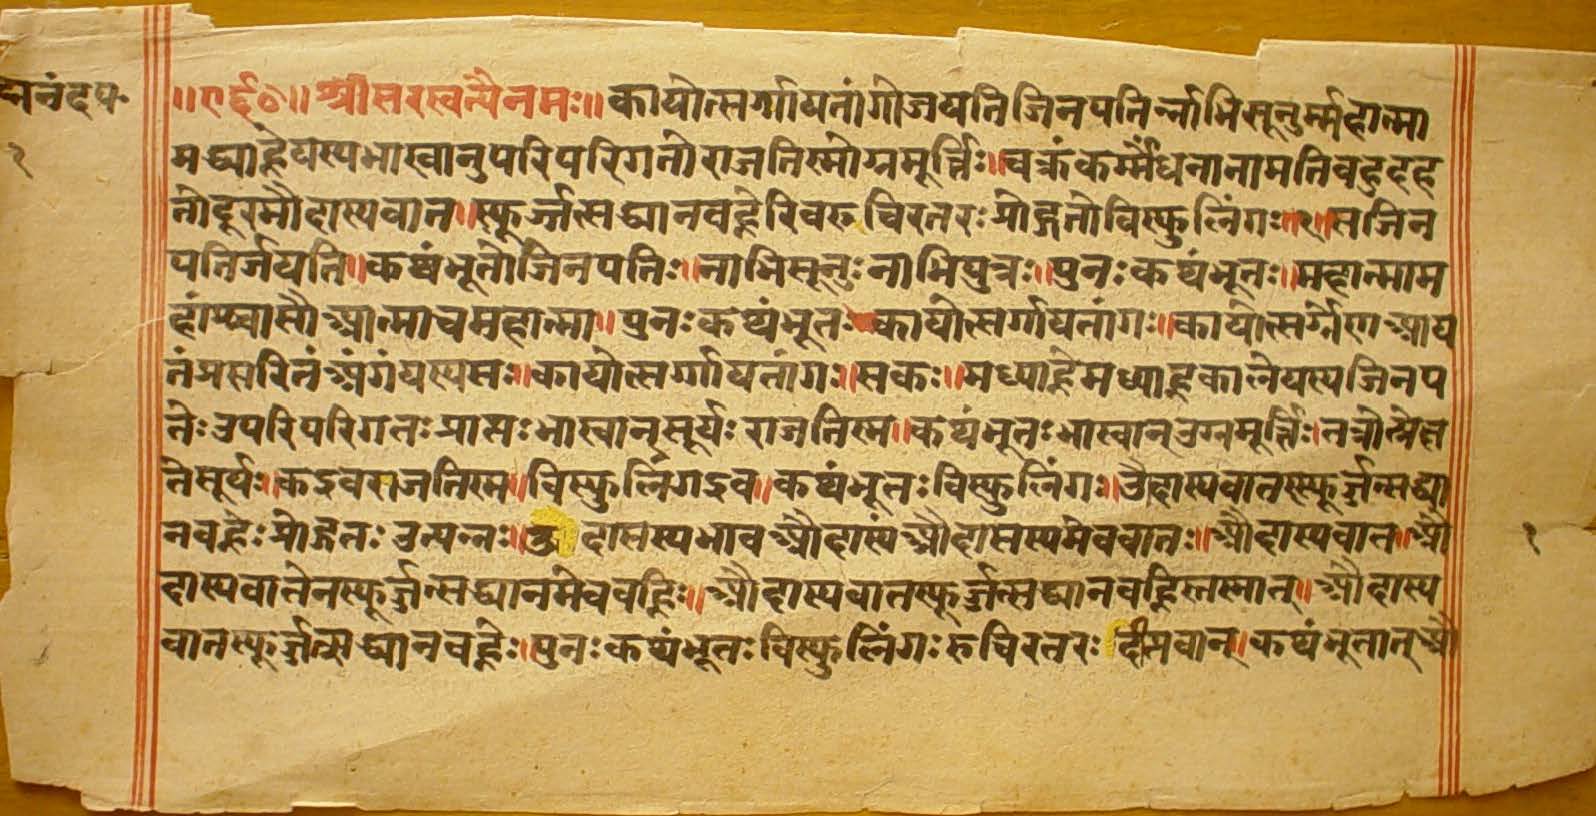 ॥ए६०॥ श्रीसरस्वत्यैनमः॥कायोत्सर्गायतांगोजयतिजिनपतिर्न्नाभिसूनुर्म्महात्मा
मध्याह्नेयस्यभास्वानुपरिपरिगतोराजतिस्मोग्रमूर्त्तिः॥चक्रंकर्म्मेंधनानामतिबहुदह
तोदूरमौदास्यवात॥स्फूर्ज्जत्सद्ध्यानवह्नेरिवरुचिरतरःप्रोद्गतोविस्फुलिंगः॥१॥सजिन
पतिर्जयति॥कथंभूतोजिनपतिः॥नाभिसूनुःनाभिपुत्रः॥पुनःकथंभूतः॥महात्माम
हांश्चासौआत्माचमहात्मा॥पुनःकथंभूतःकायोत्सर्गायतांगः॥कायोत्सर्ग्गेणआय
तंप्रसरितंअंगंयस्यसः॥कायोत्सर्ग्गायतांगः॥सकः॥मध्याह्नेमध्याह्नकालेयस्यजिनप
तेःउपरिपरिगतःप्राप्तःभास्वान्सूर्यःराजतिस्म॥कथंभूतःभास्वान्उग्रमूर्त्तिः।तत्रोत्प्रेक्ष
तेसूर्यः॥कइवराजतिस्म॥विस्फुलिंगइव॥कथंभूतःविस्फुलिंगः॥औदास्यवातस्स्फूर्ज्जत्सद्ध्या
नवह्नेःप्रोद्गतःउत्पन्नः॥उदासस्यभावऔदास्यंऔदासस्यमेववातः॥औदास्यवात॥औ
दास्यवातेनस्फूर्ज्जत्सद्ध्यानमेववह्निः॥औदास्यवातस्फूर्ज्जत्सद्ध्यानवह्निस्तस्मात्॥औदास्य
वातस्फूर्ज्जत्सद्ध्यानवह्नेः॥पुनःकथंभूतःविस्फुलिंगःरुचिरतरःदीप्तवान्॥कथंभूतात्औ
१
१